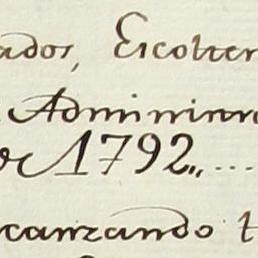 ados, Escolten
Administra
de 1792,, ....
canzando t